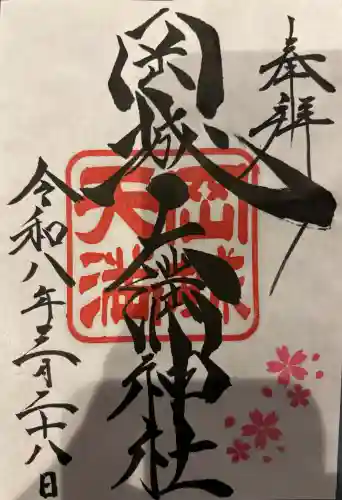 奉拝
岡城天満神社
岡城
天満
令和八年三月二十八日